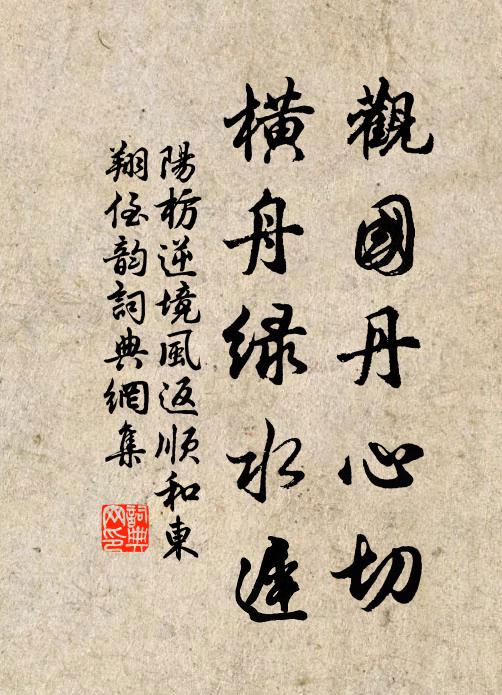 觀國丹心切
橫舟綠水遲
陽枋逆境風返順和東
翔侄韵詞典網集
詞典
网印